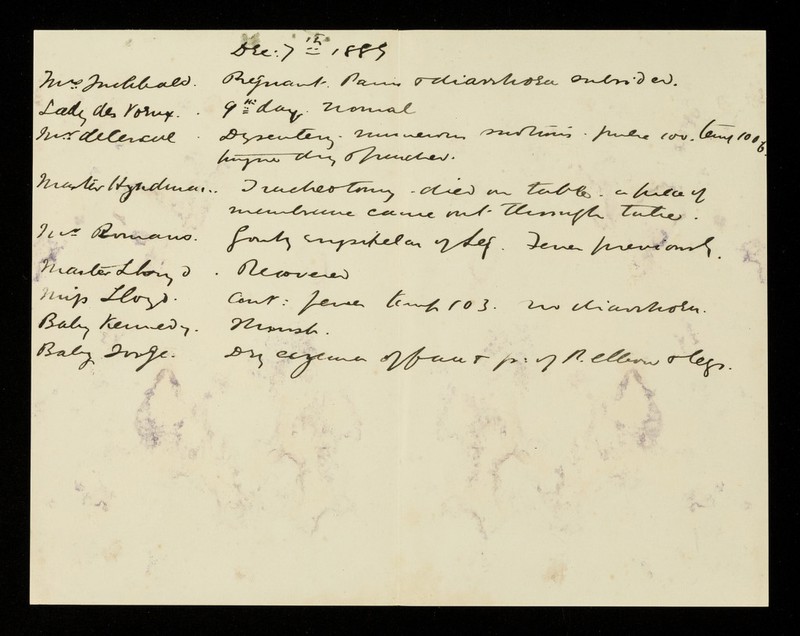 Dec: 7th 1889
Mrs Inchbald. Pregnant. Pains & diarrhoea subsided.
Lady des Voeux. . 9th day. normal
Mr . Dysentery. numerous motions. pulse 100. temp 100
dry
Master Hyndman.. Tracheotomy. died on table. a piece of
membrane came out through tube.
Mrs Romano. Gouty erysipelas of leg. Fever previously.
Master Lloyd . Recovered
Miss Lloyd. Cont: fever temp 103. no diarrhoea.
Baby Kennedy. Thrush.
Baby Dry eczema of face & of R. elbow & legs.